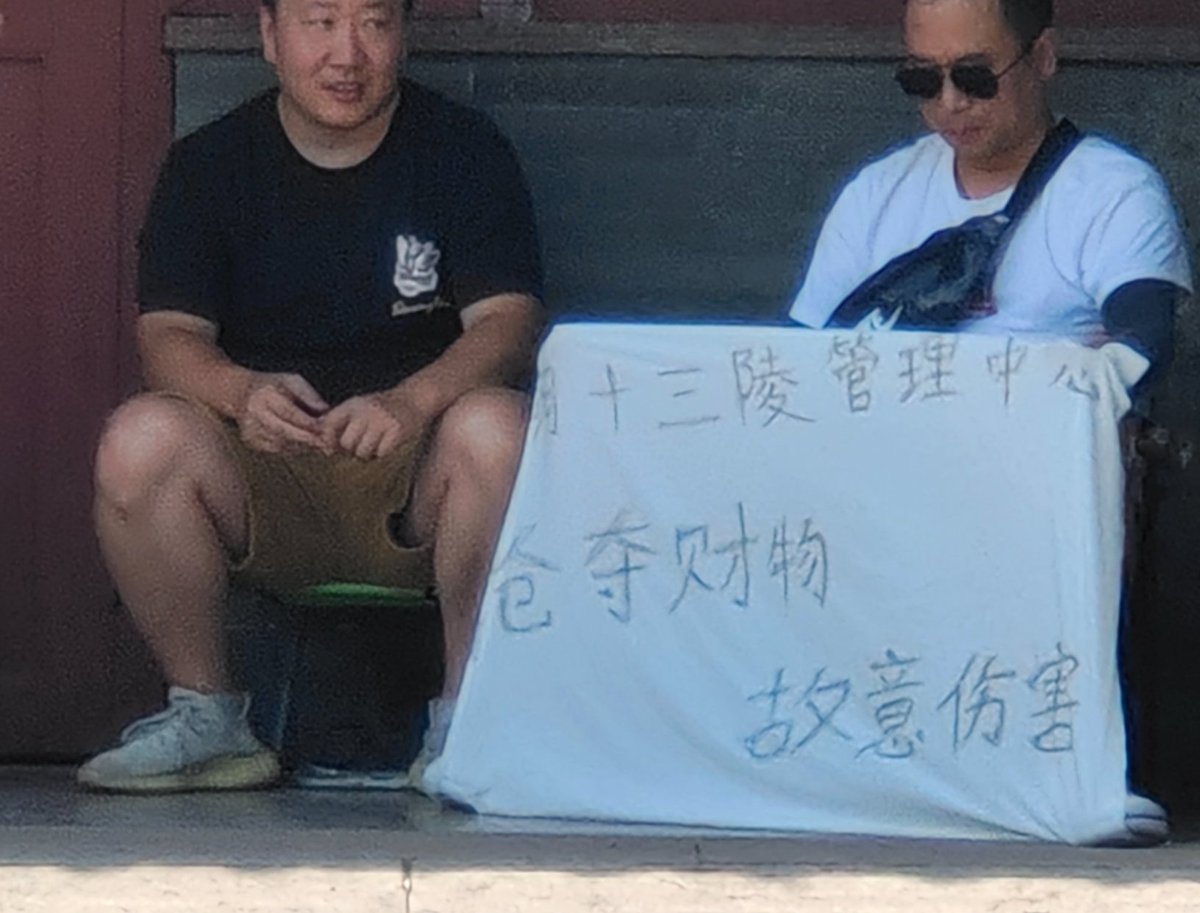 明十三陵管理中心
仓夺财物
故意伤害